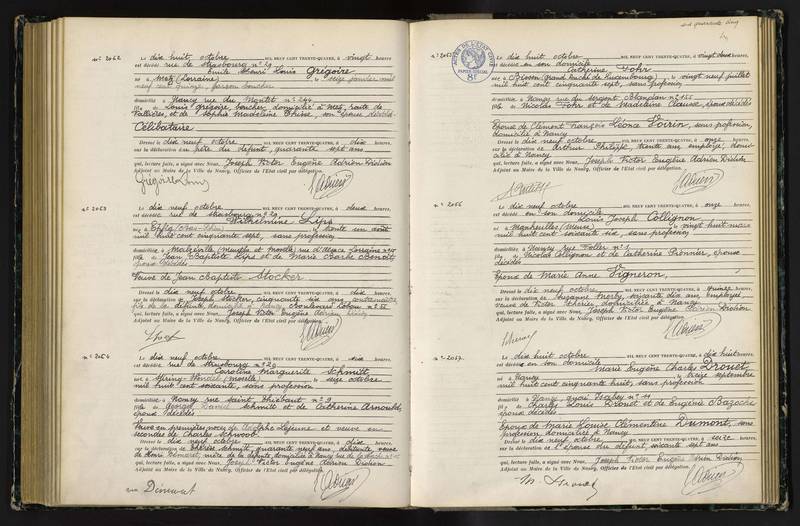 n° 2062
Le dix huit octobre MIL NEUF CENT TRENTE-QUATRE, à vingt heures,
est décédé rue de Strasbourg n° 29
Emile Henri Louis Grégoire
né à Metz (Lorraine) le seize janvier mil
neuf cent quinze, garçon boucher
domicilié à Nancy rue du Montet n° 244
fils de Louis Grégoire, boucher, domicilié à Metz, route de
Vallières, et de Sophie Madeleine son épouse décédée
Célibataire
Dressé le dix neuf octobre
sur la déclaration du père du défunt, quarante sept ans
qui, lecture faite, a signé avec Nous, Joseph Victor Eugène Adrion Didion
Adjoint au Maire de la Ville de Nancy, Officier de l'Etat civil par délégation.
n° 2063
Le dix neuf octobre MIL NEUF CENT TRENTE-QUATRE, à deux heures,
est décédée rue de Strasbourg n° 29
Wilhelmine Lips
née à Epfig (Bas-Rhin) le trente un août
mil huit cent cinquante sept, sans profession
domiciliée à Malzéville (Meurthe et Moselle) rue d'Alsace Lorraine
fille de Jean Baptiste Lips et de Marie Barbe Benoît
époux décédés
Veuve de Jean Baptiste Stocker
Dressé le dix neuf octobre à dix heures
sur la déclaration de Joseph Stocker, cinquante six ans,
fils de la défunte, domicilié à Nancy, Boulevard Lobau
qui, lecture faite, a signé avec Nous, Joseph Victor Eugène Adrion Didion
Adjoint au Maire de la Ville de Nancy, Officier de l'Etat civil par délégation.
n° 2064
Le dix neuf octobre MIL NEUF CENT TRENTE-QUATRE, à six heures,
est décédée rue de Strasbourg n° 29
Caroline Marguerite Schmitt
née à Stiring-Wendel (Moselle) le seize octobre
mil huit cent soixante, sans profession
domiciliée à Nancy rue Saint Thiébaut n° 9
fille de Georges Daniel Schmitt et de Catherine Arnould,
époux décédés
Veuve en premières noces de Adolphe Lejeune et veuve en
secondes de Charles Schwoob
Dressé le dix neuf octobre à dix heures
sur la déclaration de Thérèse Schmitt, quarante neuf ans, débitante, veuve
qui, lecture faite, a signé avec Nous, Joseph Victor Eugène Adrion Didion
Adjoint au Maire de la Ville de Nancy, Officier de l'Etat civil par délégation.
n° 2065
ACTES DE L'ETAT CIVIL
PAPIER SPECIAL
8F
Le dix huit octobre MIL NEUF CENT TRENTE-QUATRE, à vingt deux heures,
est décédée en son domicile
Catherine Fohr
née à Bissen (Grand Duché de Luxembourg) le vingt neuf juillet
mil huit cent cinquante sept, sans profession
domiciliée à Nancy rue du Sergent Blandan n° 155
fille de Nicolas Fohr et de Madeleine Clausse, époux décédés
Epouse de Clément François Léonce Voirin, sans profession,
domicilié à Nancy
Dressé le dix neuf octobre à onze heures
sur la déclaration de Arthur Philippe, trente ans, employé, domi-
cilié à Nancy
qui, lecture faite, a signé avec Nous, Joseph Victor Eugène Adrion Didion
Adjoint au Maire de la Ville de Nancy, Officier de l'Etat civil par délégation.
n° 2066
Le dix neuf octobre MIL NEUF CENT TRENTE-QUATRE, à onze heures,
est décédé en son domicile
Louis Joseph Collignon
né à Manheulles (Meuse) le vingt huit mars
mil huit cent soixante six, sans profession
domicilié à Nancy rue Foller
fils de Nicolas Collignon et de Catherine Pronnier, époux
décédés
Epoux de Marie Anne Vigneron,
Dressé le dix neuf octobre à quinze heures
sur la déclaration de Suzanne soixante dix ans, employée,
domiciliée à Nancy
qui, lecture faite, a signé avec Nous, Joseph Victor Eugène Adrion Didion
Adjoint au Maire de la Ville de Nancy, Officier de l'Etat civil par délégation.
n° 2067
Le dix huit octobre MIL NEUF CENT TRENTE-QUATRE, à dix huit heures,
est décédé en son domicile
Marie Eugène Charles Drouet
né à Nancy le treize septembre
mil huit cent cinquante huit, sans profession
domicilié à Nancy quai Isabey
fils de Charles Louis Drouet et de Eugénie Bazoche
époux décédés
Epoux de Marie Louise Clémentine Dumont, sans
profession domiciliée à Nancy
Dressé le dix neuf octobre à seize heures
sur la déclaration de l'épouse du défunt, soixante sept ans
qui, lecture faite, a signé avec Nous, Joseph Victor Eugène Adrion Didion
Adjoint au Maire de la Ville de Nancy, Officier de l'Etat civil par délégation.